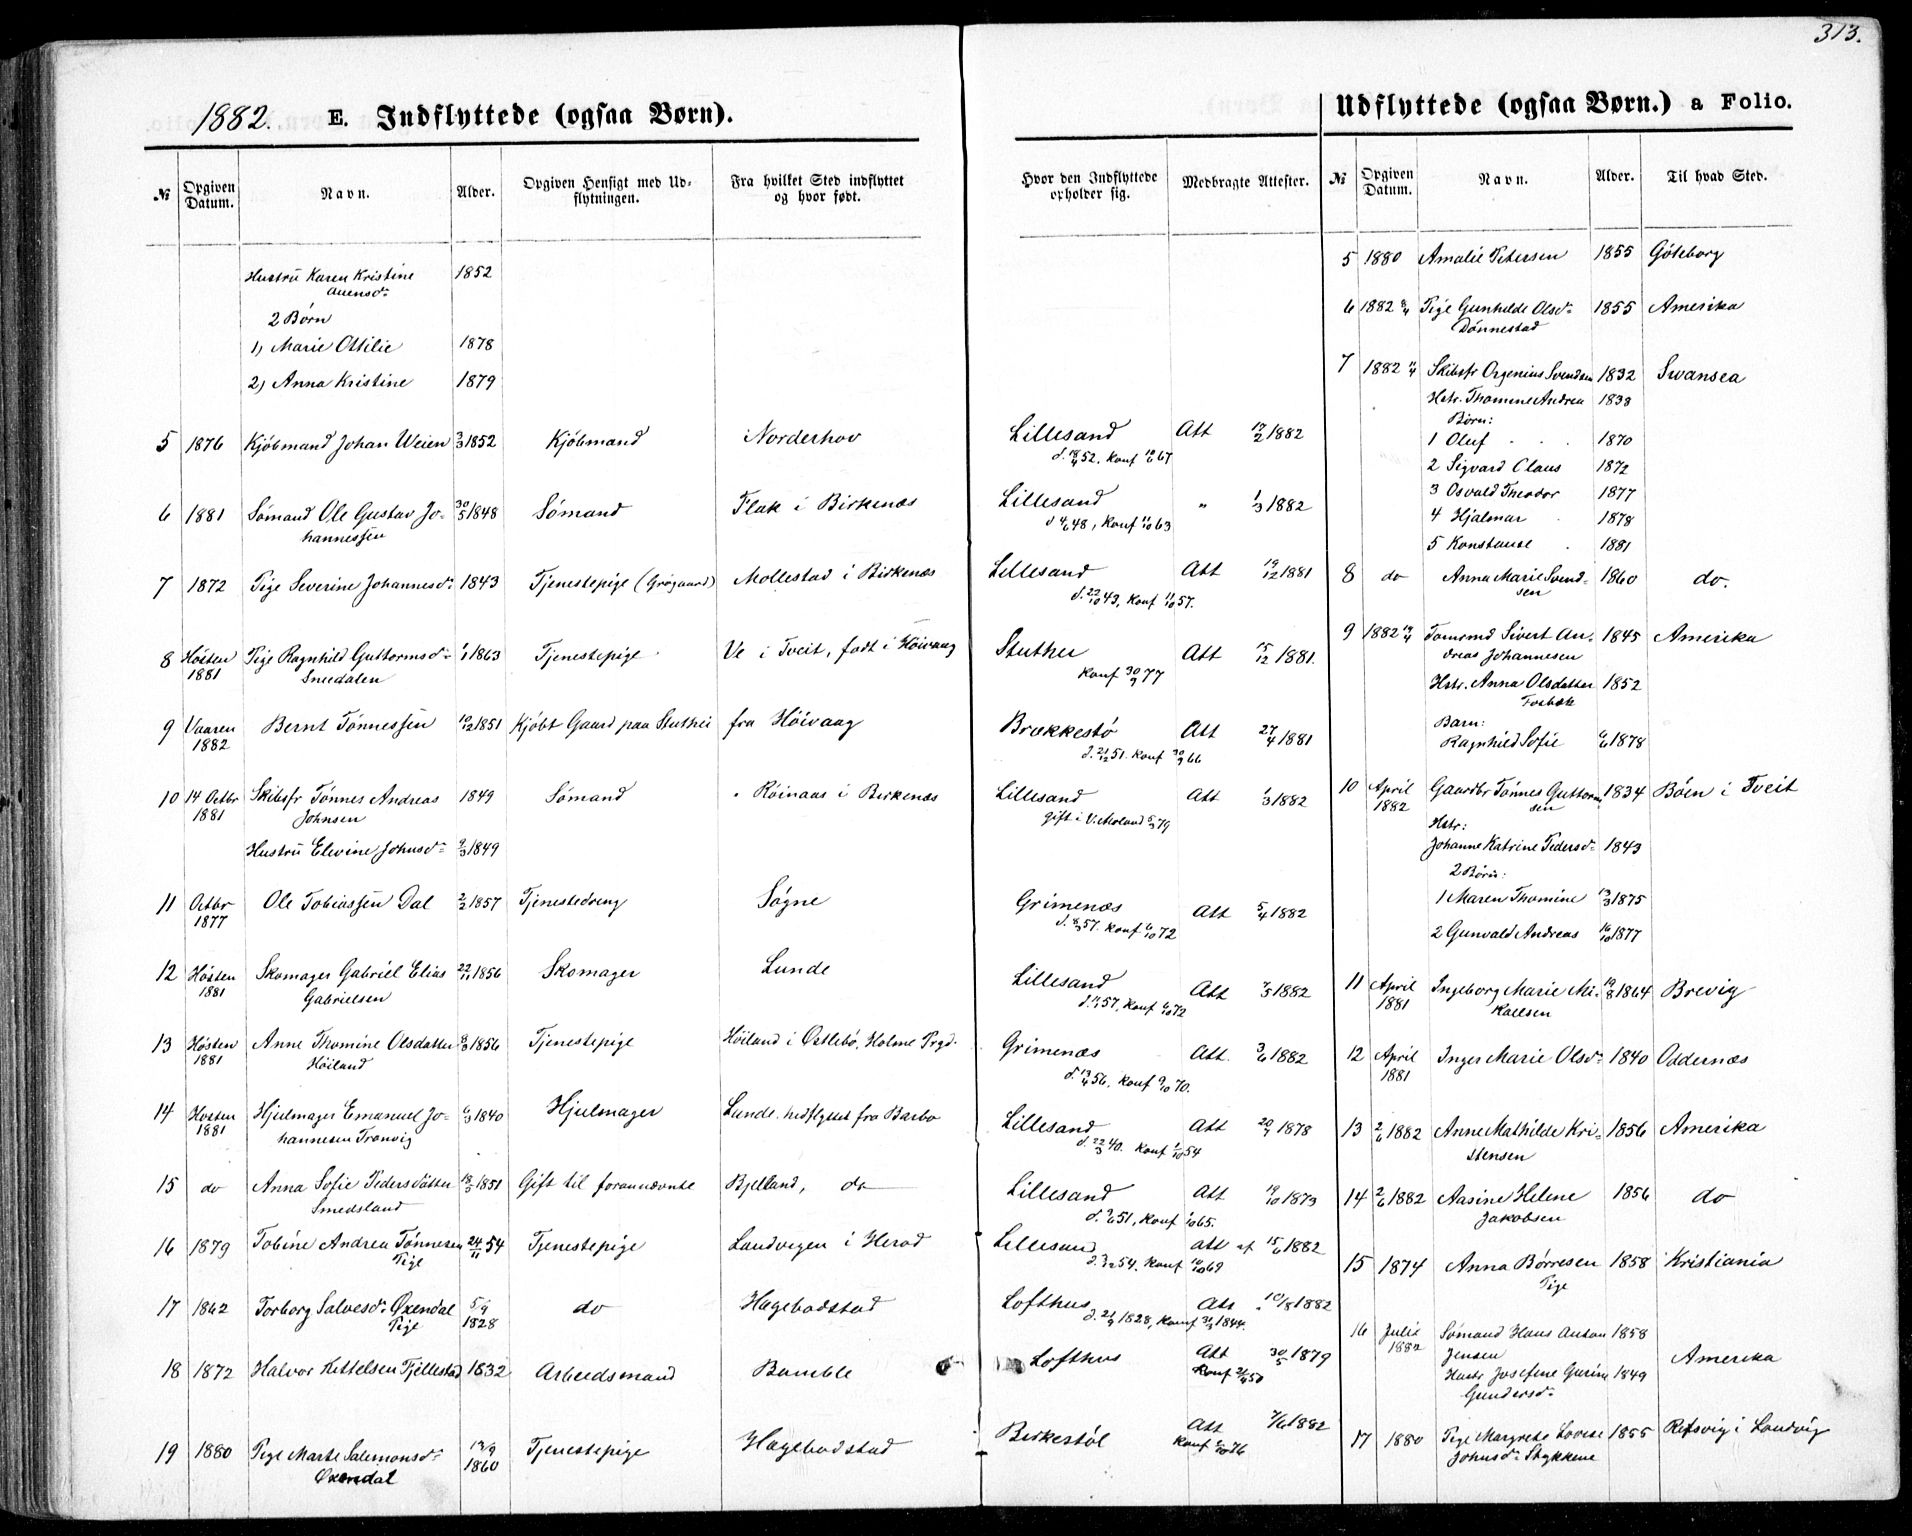 313.
1882. E. Indflyttede (ogsaa Børn).
№ Opgiven Datum. Navn. Alder. Opgiven Hensigt med Udflytningen. Fra hvilket Sted indflyttet og hvor født. Hvor den Indflyttede opholder sig. Medbragte Attester.
Hustru Karen Kristine 1852
2 Børn
1) Marie Ottilie 1878
2) Anna Kristine 1879
5 1876 Kjøbmand Johan Weien 3/3 1852 Kjøbmand Norderhov Lillesand Att 17/2 1882
6 1881 Sømand Ole Gustav Jo- 30/5 1848 Sømand Flak i Birkenæs Lillesand " 1/3 1882
hannessen
7 1872 Pige Severine Johannesd: 1843 Tjenestepige (Grøgaard) Mollestad i Birkenæs Lillesand Att 19/12 1881
d. 22/10 43, konf 11/10 57.
8 Høsten Pige Ragnhild Guttormsd: 1863 Tjenestepige Ve i Tveit, født i Høivaag Stuthei Att 15/12 1881.
1881 konf 30/9 77
9 Vaaren Bernt Tønnessen 1851 Kjøbt Gaard paa Stuthei fra Høivaag Brækkestø Att 27/4 1881
1882 d. 21/12 51. konf 30/9 66
10 14 Octbr Skibsfr Tønnes Andreas 1849 Sømand Røinaas i Birkenæs Lillesand Att 1/3 1882
1881 Johnsen gift i V. Moland 79
Hustru Elevine Johnsd: 9/3 1849
11 Octbr Ole Tobiassen Dal 2/2 1857 Tjenestedreng Søgne Grimenæs Att 5/4 1882
1877 d. 8/3 57. konf 6/10 72
12 Høsten Skomager Gabriel Elias 22/11 1856 Skomager Lunde Lillesand Att 7/5 1882
1881 Gabrielsen
13 Høsten Anne Thomine Olsdatter 1856 Tjenestepige Høiland i Østlebø, Holme Prgd. Grimenæs Att. 3/6 1882
1881 Høiland d. 13/4 56, konf 9/10 70.
14 Høsten Hjulmager Emanuel Jo- 1840 Hjulmager Lunde, hidflyttet fra Barbo Lillesand Att 20/7 1878
1881 hannesen Tronvig d. 22/3 40. konf 1/10 54
15 do Anna Sofie Pedersdatter 1851 Gift til forannævnte Bjelland, do Lillesand Att 19/10 1873
Smedsland 51, konf 1/10 65.
16 1879 Tobine Andrea Tønnesen 24/11 54 Tjenestepige Landvigen i Herad Lillesand Att af 15/6 1882
Pige 54. konf 10/10 69
17 1862 Torborg Salvesd: Øxendal 5/9 1828 do Hægebostad Lofthus Att 10/8 1882
Pige 1828, konf 1844.
18 1872 Halvor Kittelsen Fjellestad 1832 Arbeidsmand Bamble Lofthus Att 30/5 1879
19 1880 Pige Marte Salemonsd: 13/9 1860 Tjenestepige Hægebostad Birkestøl Att 7/6 1882
Øxendal konf 76
Udflyttede (ogsaa Børn.) a Folio.
№ Opgiven Datum. Navn. Alder. Til hvad Sted.
5 1880 Amalie Petersen 1855 Göteborg
6 1882 Pige Gunhilde Olsd: 1855 Amerika
Dønnestad
7 1882 Skibsfr Orgenius Svendsen 1832 Swansea
Hstr. Thomine Andrea 1838
Børn:
1 Oluf 1870
2 Sigvard Claus 1872
3 Osvald Theodor 1877
4 Hjalmar 1878
5 Konstanse 1881
8 do Anna Marie Svend- 1860 do.
sen
9 1882 19/4 Tømrmd Sivert An- 1845 Amerika
dreas Johannesen
Hstr. Anna Olsdatter 1852
Fosbæk
Barn:
Ragnhild Sofie 1878
10 April Gaardbr Tønnes Guttorm- 1834 Bøen i Tveit
1882 sen
Hstr:
Johanne Katrine Pedersd: 1843
2 Børn:
1 Maren Thomine 13/3 1875
2 Gunvald Andreas 16/10 1877
11 April Ingeborg Marie Mi- 1864 Brevig
1881 kaelsen
12 April Inger Marie Olsd: 1840 Oddernæs
1881
13 2/6 1882 Anne Mathilde Kri- 1856 Amerika
stensen
14 2/6 1882 Aasine Helene 1856 do
Jakobsen
15 1874 Anna Børresen 1858 Kristiania
Pige
16 Juli Sømand Hans Anton 1858
1882 Jensen Amerika
Hustr Josefine Gurine 1849
Gundersd:
17 1880 Pige Margrete Lovise 1855 Refsvig i Landvig
Johnsd: Stykkene